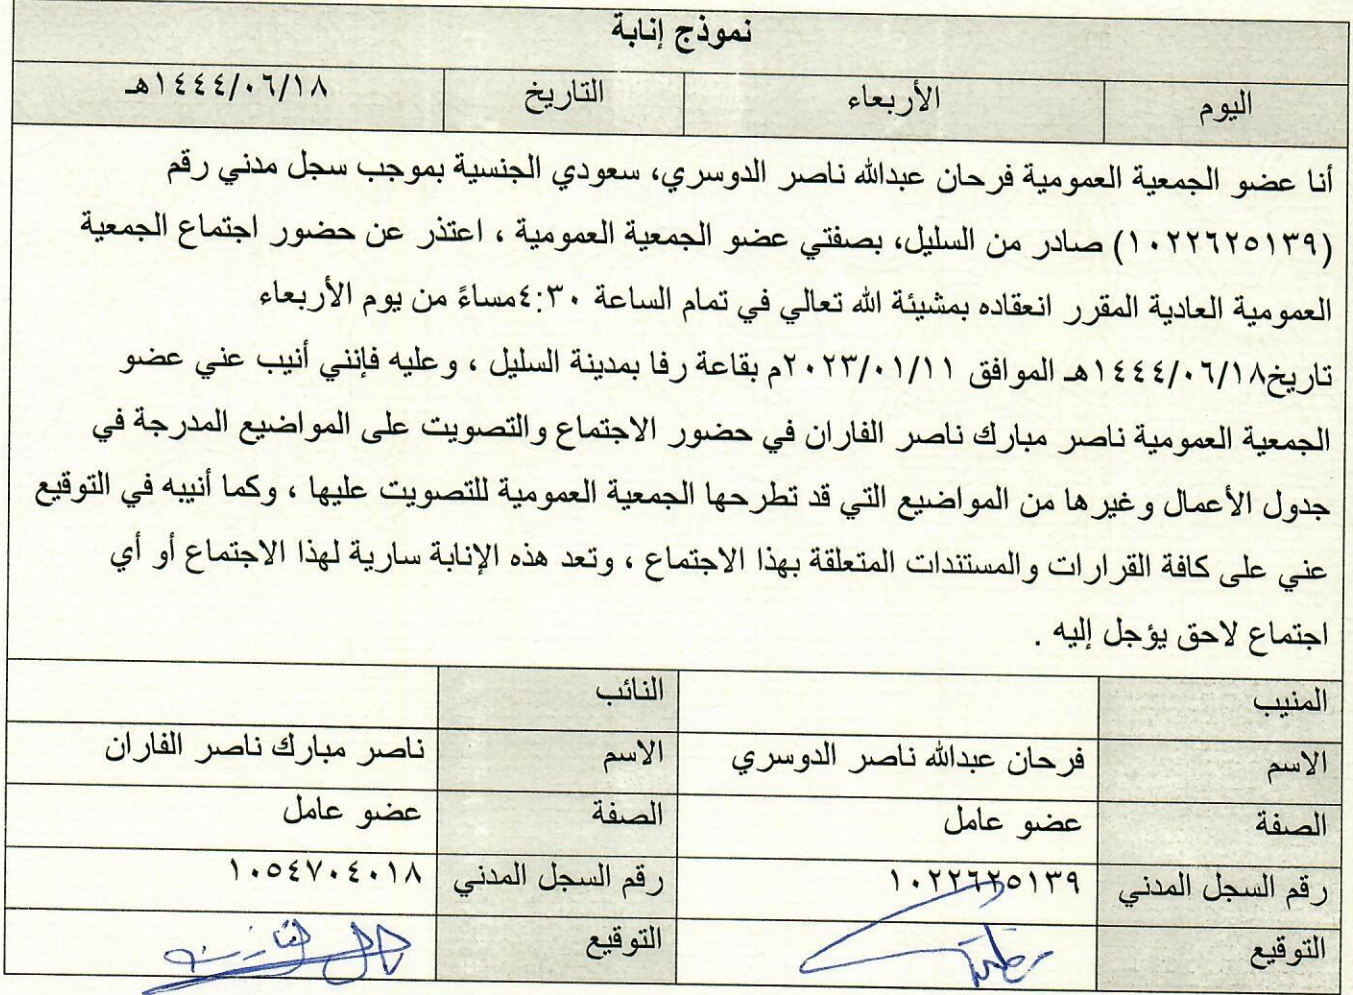 نموذج إنابة
اليوم الأربعاء التاريخ ١٤٤٤/٠٦/١٨هـ
أنا عضو الجمعية العمومية فرحان عبدالله ناصر الدوسري، سعودي الجنسية بموجب سجل مدني رقم
(١٠٢٢٦٢٥١٣٩) صادر من السليل، بصفتي عضو الجمعية العمومية ، اعتذر عن حضور اجتماع الجمعية
العمومية العادية المقرر انعقاده بمشيئة الله تعالي في تمام الساعة ٤:٣٠مساءً من يوم الأربعاء
تاريخ١٤٤٤/٠٦/١٨هـ الموافق ٢٠٢٣/٠١/١١م بقاعة رفا بمدينة السليل ، وعليه فإنني أنيب عني عضو
الجمعية العمومية ناصر مبارك ناصر الفاران في حضور الاجتماع والتصويت على المواضيع المدرجة في
جدول الأعمال وغيرها من المواضيع التي قد تطرحها الجمعية العمومية للتصويت عليها ، وكما أنيبه في التوقيع
عني على كافة القرارات والمستندات المتعلقة بهذا الاجتماع ، وتعد هذه الإنابة سارية لهذا الاجتماع أو أي
اجتماع لاحق يؤجل إليه .
المنيب النائب
الاسم فرحان عبدالله ناصر الدوسري الاسم ناصر مبارك ناصر الفاران
الصفة عضو عامل الصفة عضو عامل
رقم السجل المدني ١٠٢٢٦٢٥١٣٩ رقم السجل المدني ١٠٥٤٧٠٤٠١٨
التوقيع التوقيع